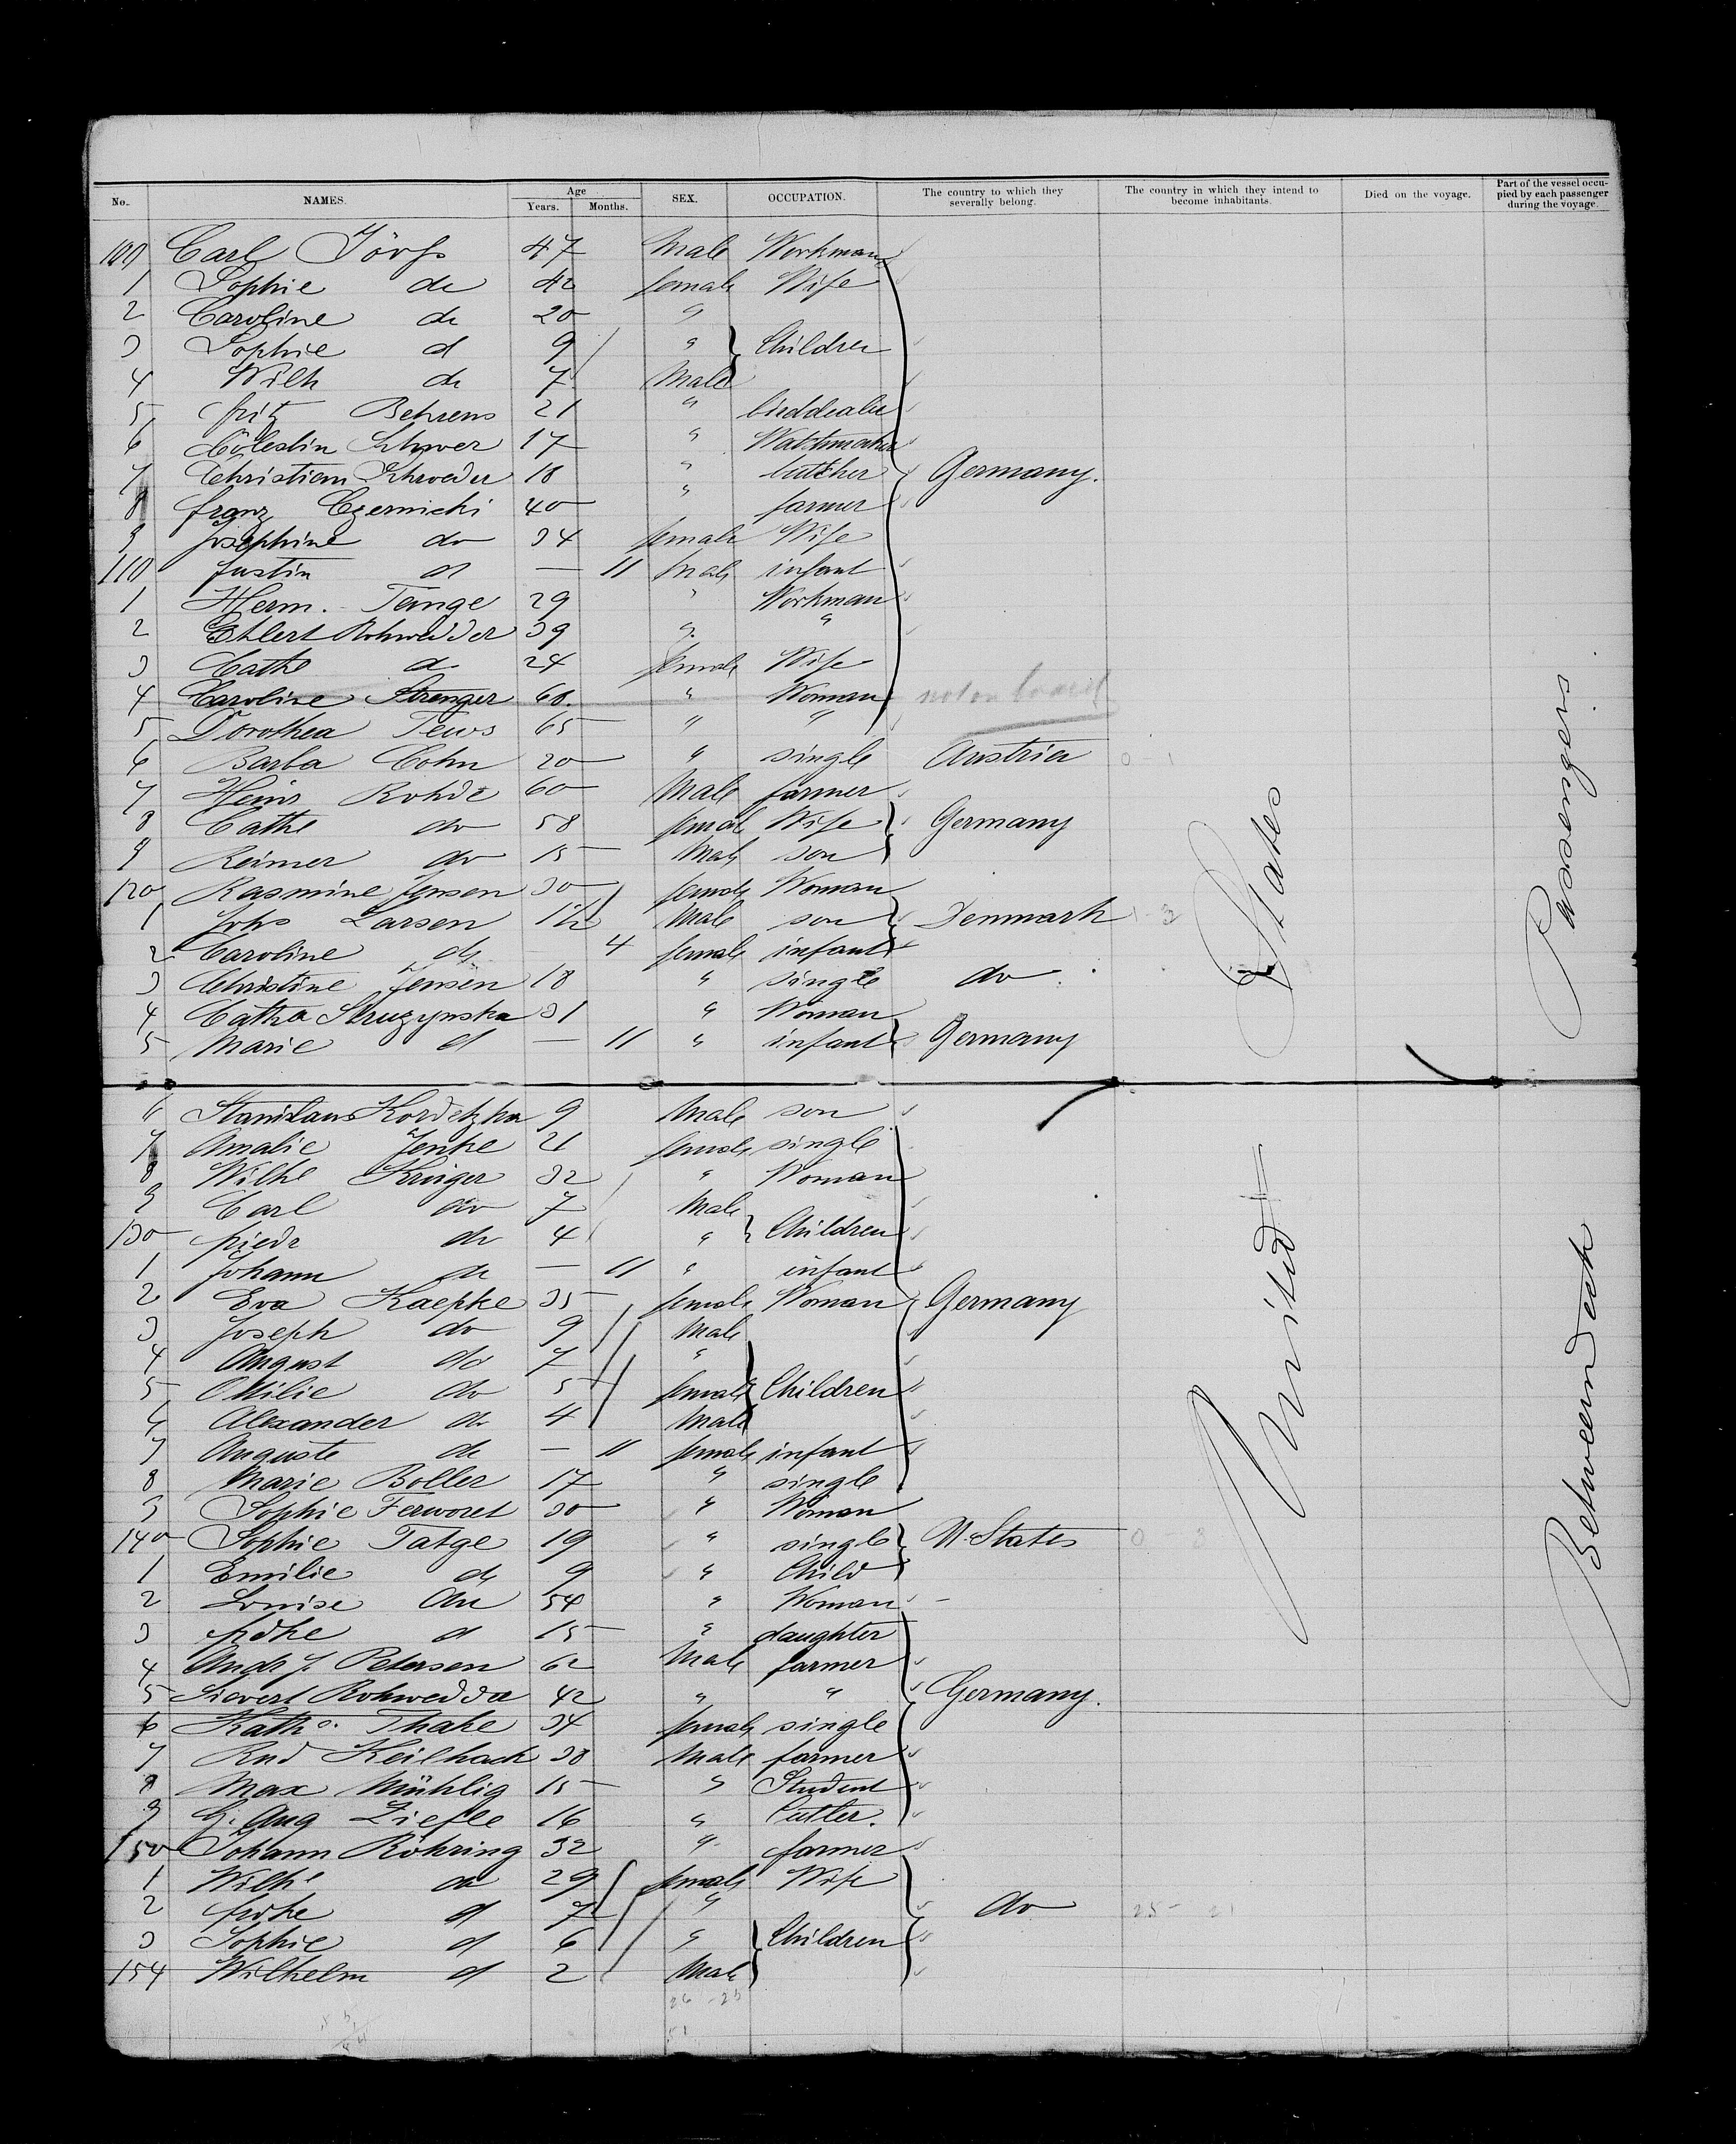 No. NAMES. Age Years. Months. SEX. OCCUPATION. The country to which they severally belong. The country in which they intend to become inhabitants. Died on the voyage. Part of the vessel occupied by each passenger during the voyage.
100 Carl Jörfs 47 Male Workman
1 Sophie do 42 female Wife
2 Caroline do 20 "
3 Sophie d 9 " Children
4 Wilh do 7 Male
5 fritz Behrens 21 " birddealer
6 Cölestin 17 " Watchmaker
7 Christian Schroeder 18 " butcher Germany.
8 franz Czernicki 40 " farmer
9 Josephine do 34 female Wife
110 Justin d — 11 Male infant
1 Herm. Tange 29 " Workman
2 Ehlert Rohwedder 39 " "
3 Cathe d 24 female Wife
4 Caroline Strenger 68. " Woman not on board
5 Dorothea Tews 65 " "
6 Barba Cohn 20 " single Austria 0 - 1
7 Heinr Rohde 60 Male farmer
8 Cathe do 58 female Wife Germany
9 Reimer do 15 Male son
120 Rasmine Jensen 30 female Woman
1 Johs Larsen 1½ Male son Denmark 1 - 3
2 Caroline do 4 female infant
3 Christine Jensen 18 " single do
4 Catha Struzynska 31 " Woman
5 Marie d — 11 " infant Germany
6 Stanislaus Kordetzka 9 Male son
7 Amalie Jenke 21 female single
8 Wilhe Krüger 32 " Woman
9 Carl do 7 Male
130 friedr do 4 " Children
1 Johann do — 11 " infant
2 Eva Kaepke 35 female Woman Germany
3 Joseph do 9 Male
4 August do 7 "
5 Ottilie do 5 female Children
6 Alexander do 4 Male
7 Auguste do — 11 female infant
8 Marie Boller 17 " single
9 Sophie Ferworet 30 " Woman
140 Sophie Tatge 19 " single U. States 0 3
1 Emilie do 9 " Child
2 Louise Au 54 " Woman
3 frdke d 15 " daughter
4 Andr J. Petersen 62 Male farmer
5 Sievert Rohwedder 42 " " Germany.
6 Katha Thake 34 female single
7 Rud Keilhack 38 Male farmer
8 Max Mühlig 15 " Student
9 G. Aug Ziefle 16 " Cutler.
150 Johann Röhring 32 " farmer
1 Wilhe do 29 female Wife
2 frdke d 7 " do 25 - 21
3 Sophie d 6 " Children
154 Wilhelm d 2 Male
26 - 25
51
United States
Betweendeck Passengers.